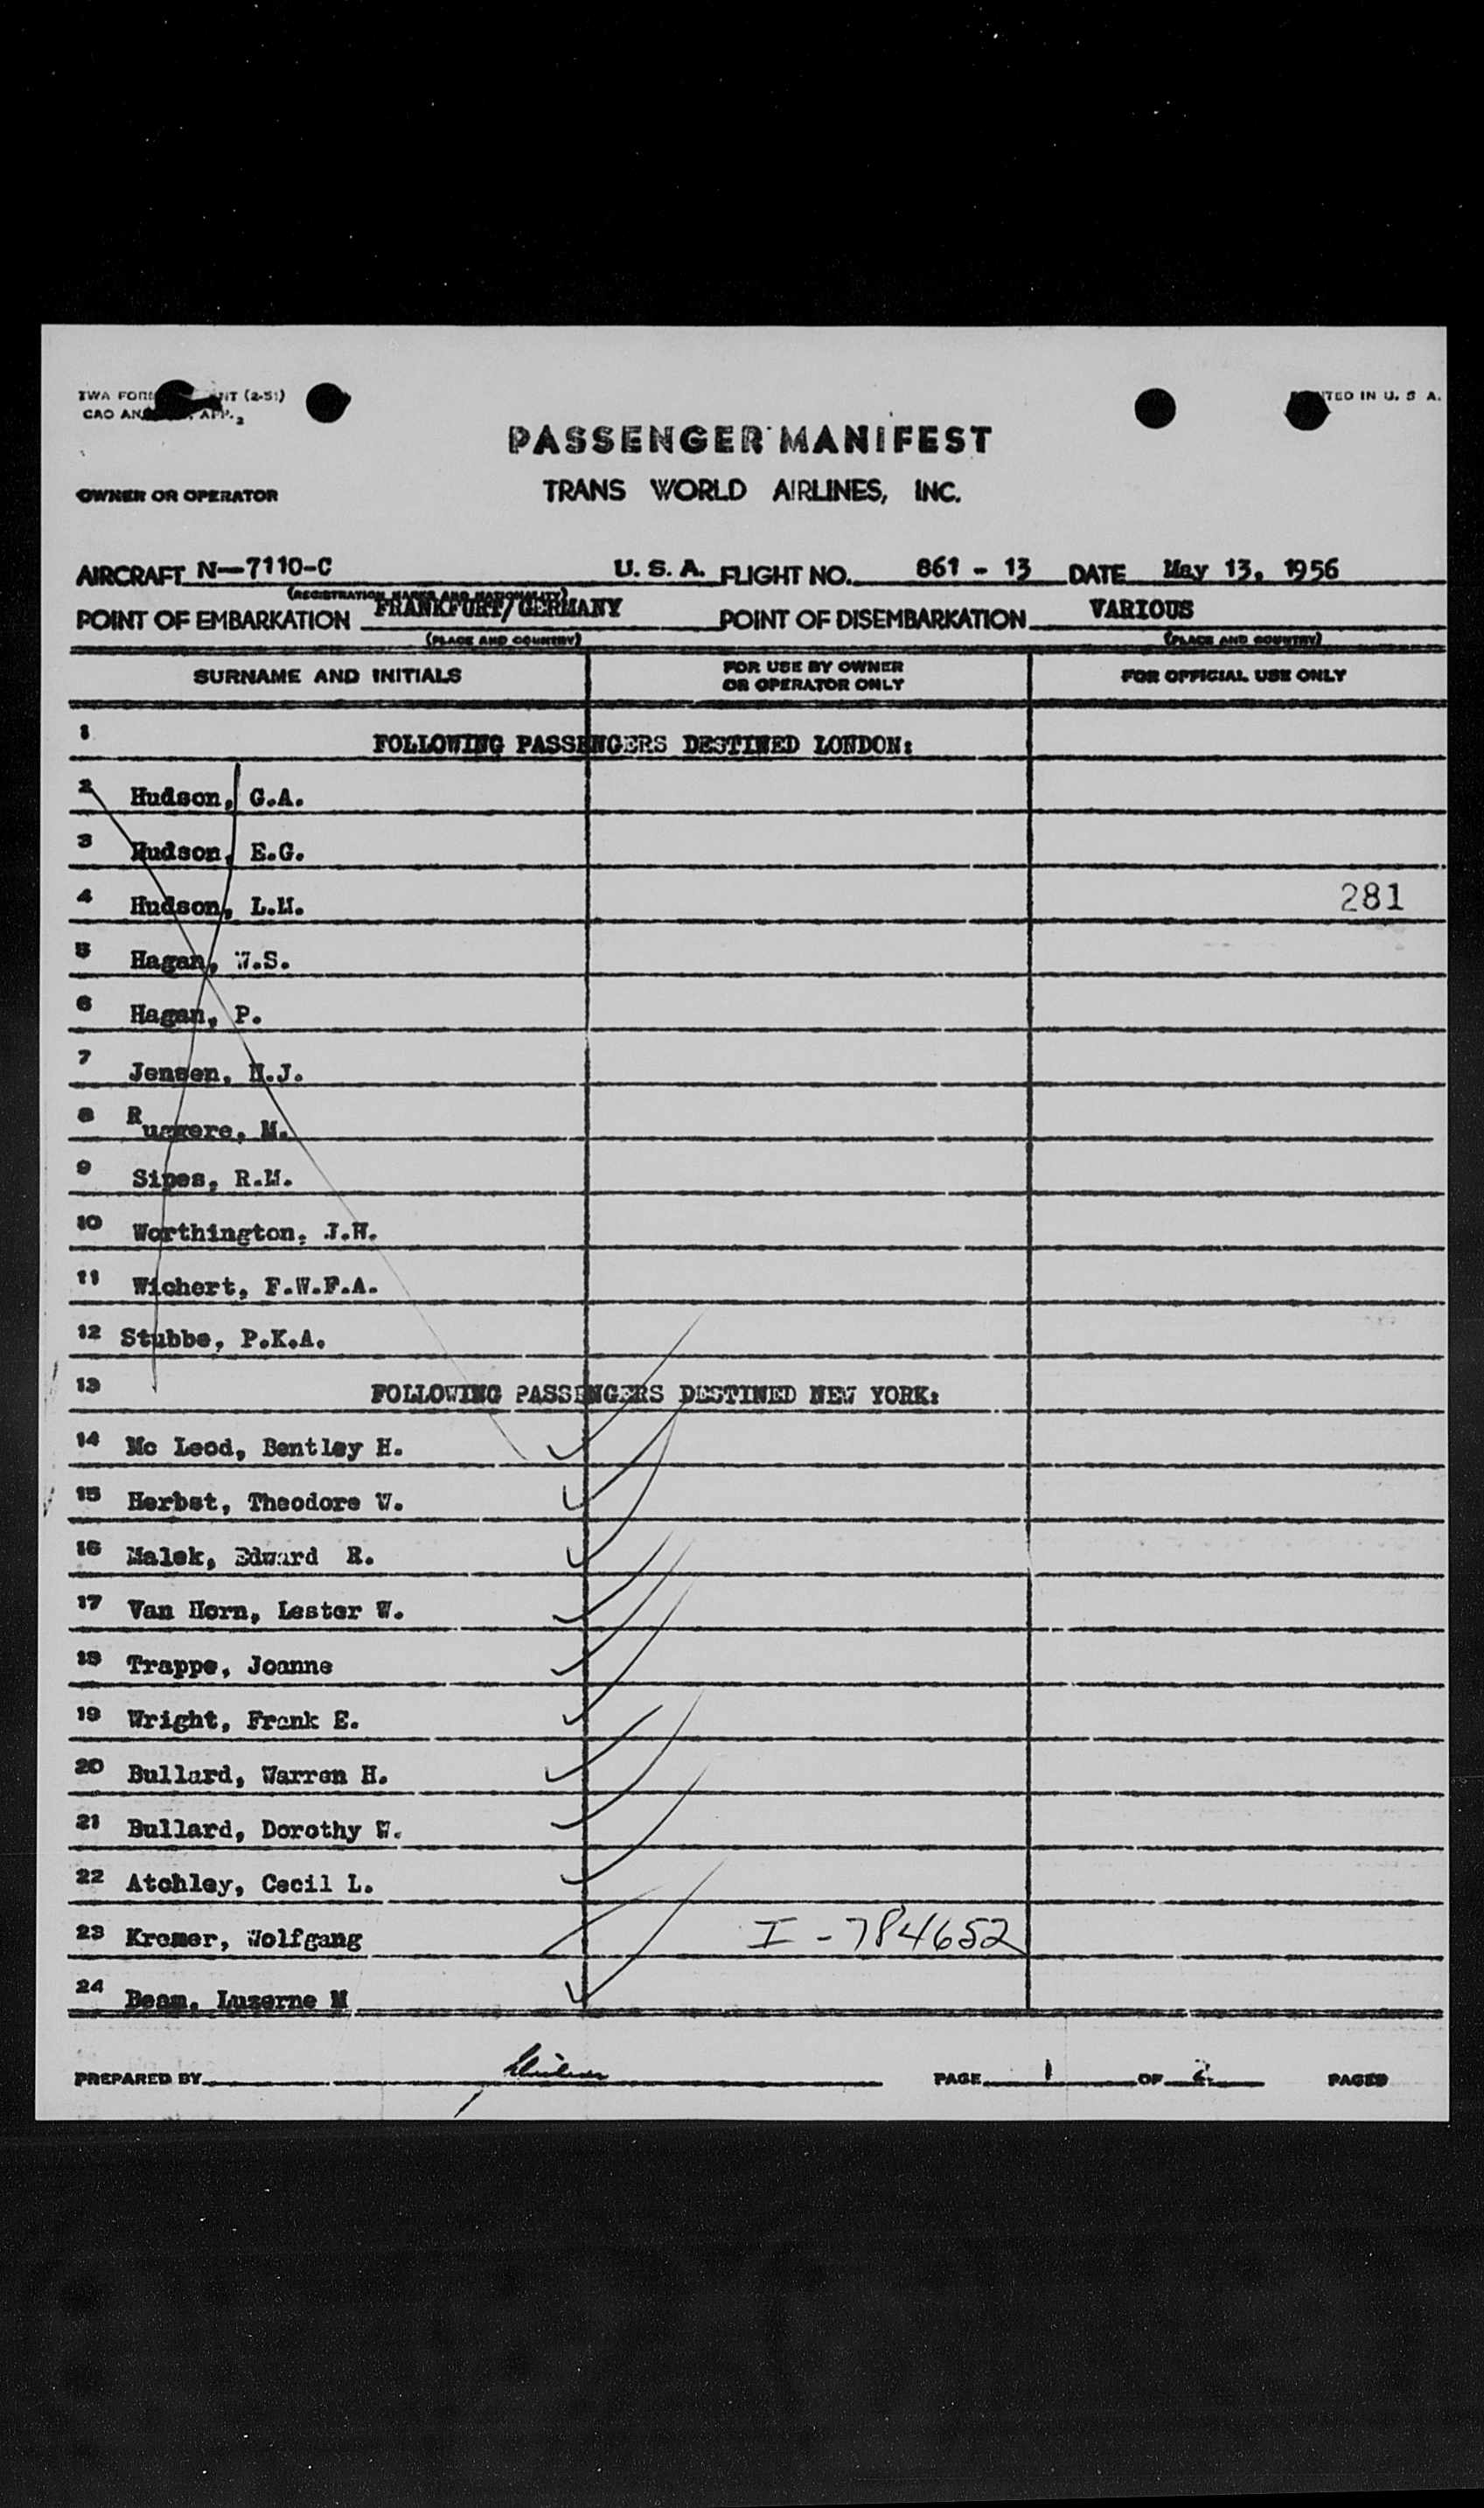 TWA FORM NT (2-51) PRINTED IN U. S. A.
CAO AN APP. 2
PASSENGER MANIFEST
OWNER OR OPERATOR TRANS WORLD AIRLINES, INC.
AIRCRAFT N-7110-C U.S.A. FLIGHT NO. 861 - 13 DATE May 13, 1956
(REGISTRATION MARKS AND NATIONALITY)
POINT OF EMBARKATION FRANKFURT/GERMANY POINT OF DISEMBARKATION VARIOUS
(PLACE AND COUNTRY) (PLACE AND COUNTRY)
SURNAME AND INITIALS FOR USE BY OWNER OR OPERATOR ONLY FOR OFFICIAL USE ONLY
1 FOLLOWING PASSENGERS DESTINED LONDON:
2 Hudson, G.A.
3 Hudson, E.G.
4 Hudson, L.M. 281
5 Hagan, W.S.
6 Hagan, P.
7 Jensen, N.J.
8 Ruggere, M.
9 Sipes, R.M.
10 Worthington, J.H.
11 Wichert, F.W.F.A.
12 Stubbe, P.K.A.
13 FOLLOWING PASSENGERS DESTINED NEW YORK:
14 Mc Leod, Bentley H.
15 Herbst, Theodore W.
16 Malek, Edward R.
17 Van Horn, Lester W.
18 Trappe, Joanne
19 Wright, Frank E.
20 Bullard, Warren H.
21 Bullard, Dorothy W.
22 Atchley, Cecil L.
23 Kremer, Wolfgang I-784652
24 Beam, Luzerne M
PREPARED BY PAGE 1 OF 2 PAGES